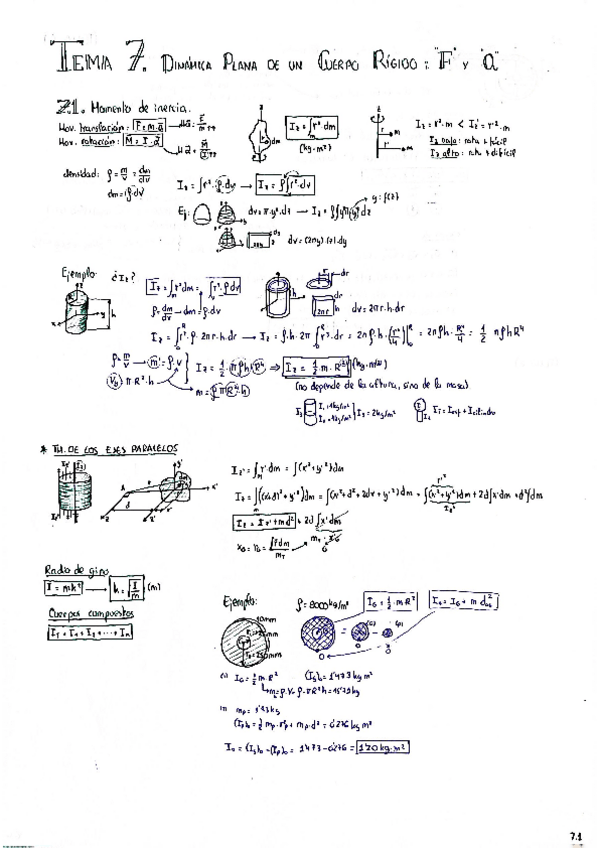 TEMA 7. DINÁMICA PLANA DE UN CUERPO RÍGIDO: "F" Y "a"
7.1. Momento de inercia.
Mov. traslación: F=m·a
Mov. rotación: M=I·α
I_z=∫r²·dm
(kg·m²)
I_z=r²·m < I_z'=r'²·m
I_z bajo: rota + fácil
I_z alto: rota + difícil
densidad: ρ=m/v=dm/dv
dm=ρ·dv
I_z=∫r²·ρ·dv → I_z=ρ∫r²·dv
y=f(z)
Ej:
dv=π·y²·dz
dv=(2πy)·(z)·dy
Ejemplo: ¿I_z?
I_z=∫r²dm=∫r²·ρdv
ρ=dm/dv → dm=ρ·dv
dv=2πr·h·dr
I_z=∫r²·ρ·2πr·h·dr → I_z=ρ·h·2π∫r³·dr=2πρ·h·(r⁴/4)=2πρh·R⁴/4=1/2 πρhR⁴
ρ=m/v → m=ρ·v
V=πR²·h
I_z=1/2·πρh·R⁴ ⇒ I_z=1/2·m·R² (kg·m²)
m=ρπR²·h
(no depende de la altura, sino de la masa)
I_3=2kg/m²
* TH. DE LOS EJES PARALELOS
I_z'=∫r'²dm=∫(x'²+y'²)dm
I_z=∫((x'+d)²+y'²)dm=∫(x'²+d²+2dx'+y'²)dm=∫(x'²+y'²)dm+2d∫x'dm+d²∫dm
I_z=I_z'+md²+2d∫x'dm
Radio de giro
I=mk² → k=√(I/m) (m)
Cuerpos compuestos
I_T=I_1+I_2+...+I_n
Ejemplo:
ρ=8000kg/m³
I_G=1/2·m·R²
I_o=I_G+m·d²
10mm
I_G=1/2·m·R²
(I_g)_o=1'473kg·m²
m=ρ·V=ρ·πR²h
(I_p)_o=1/2 m_p·r_p²+m_p·d²=0'276kg·m²
I_o=(I_g)_o-(I_p)_o=1'473-0'276=1'20kg·m²
7.1